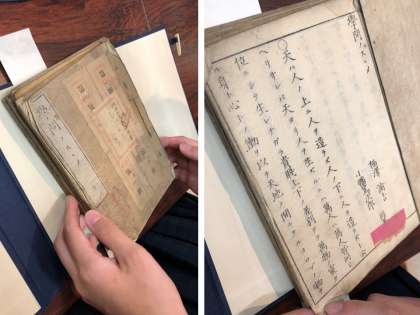 學問ノスヽメ
學問ノスヽメ
福澤諭吉
小幡篤次郎
○天ハ人ノ上ニ人ヲ造ラズ人ノ下ニ人ヲ造ラズト云
ヘリサレバ天ヨリ人ヲ生ズルニハ萬人ハ萬人皆同ジ
位ニシテ生レナガラ貴賤上下ノ差別ナク萬物ノ靈タ
ル身ト心トノ働ヲ以テ天地ノ間ニアルヨロヅノ物ヲ